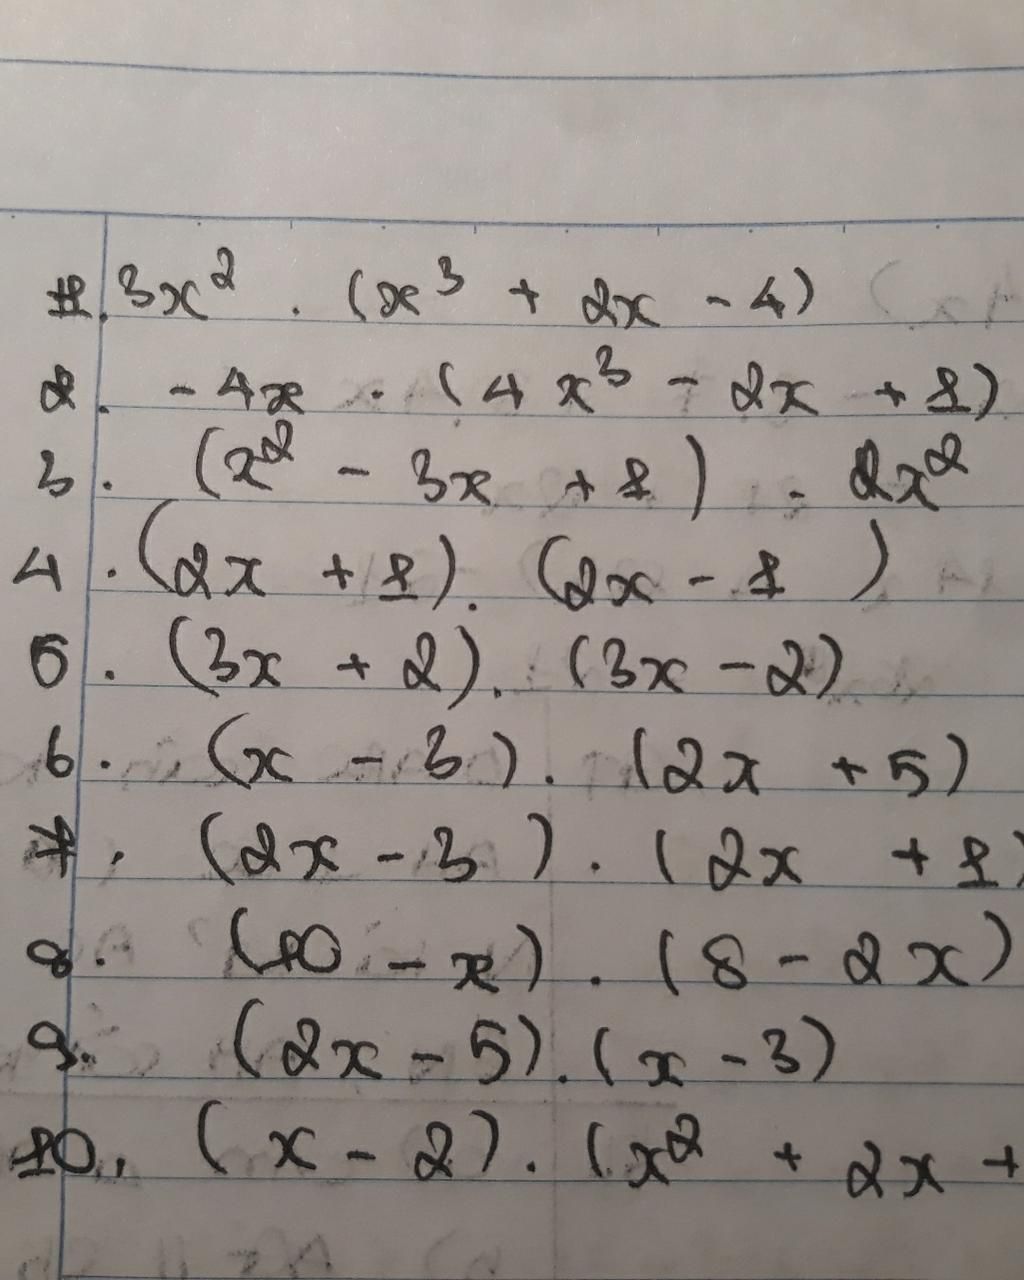 1. 3x² . (x³ + 2x - 4)
2. - 4x . (4x³ - 2x + 1)
3. (x² - 3x + 1) . 2x²
4. (2x + 1). (2x - 1)
5. (3x + 2). (3x - 2)
6. (x - 3). (2x + 5)
7. (2x - 3). (2x + 1)
8. (10 - x). (8 - 2x)
9. (2x - 5). (x - 3)
10. (x - 2). (x² + 2x +